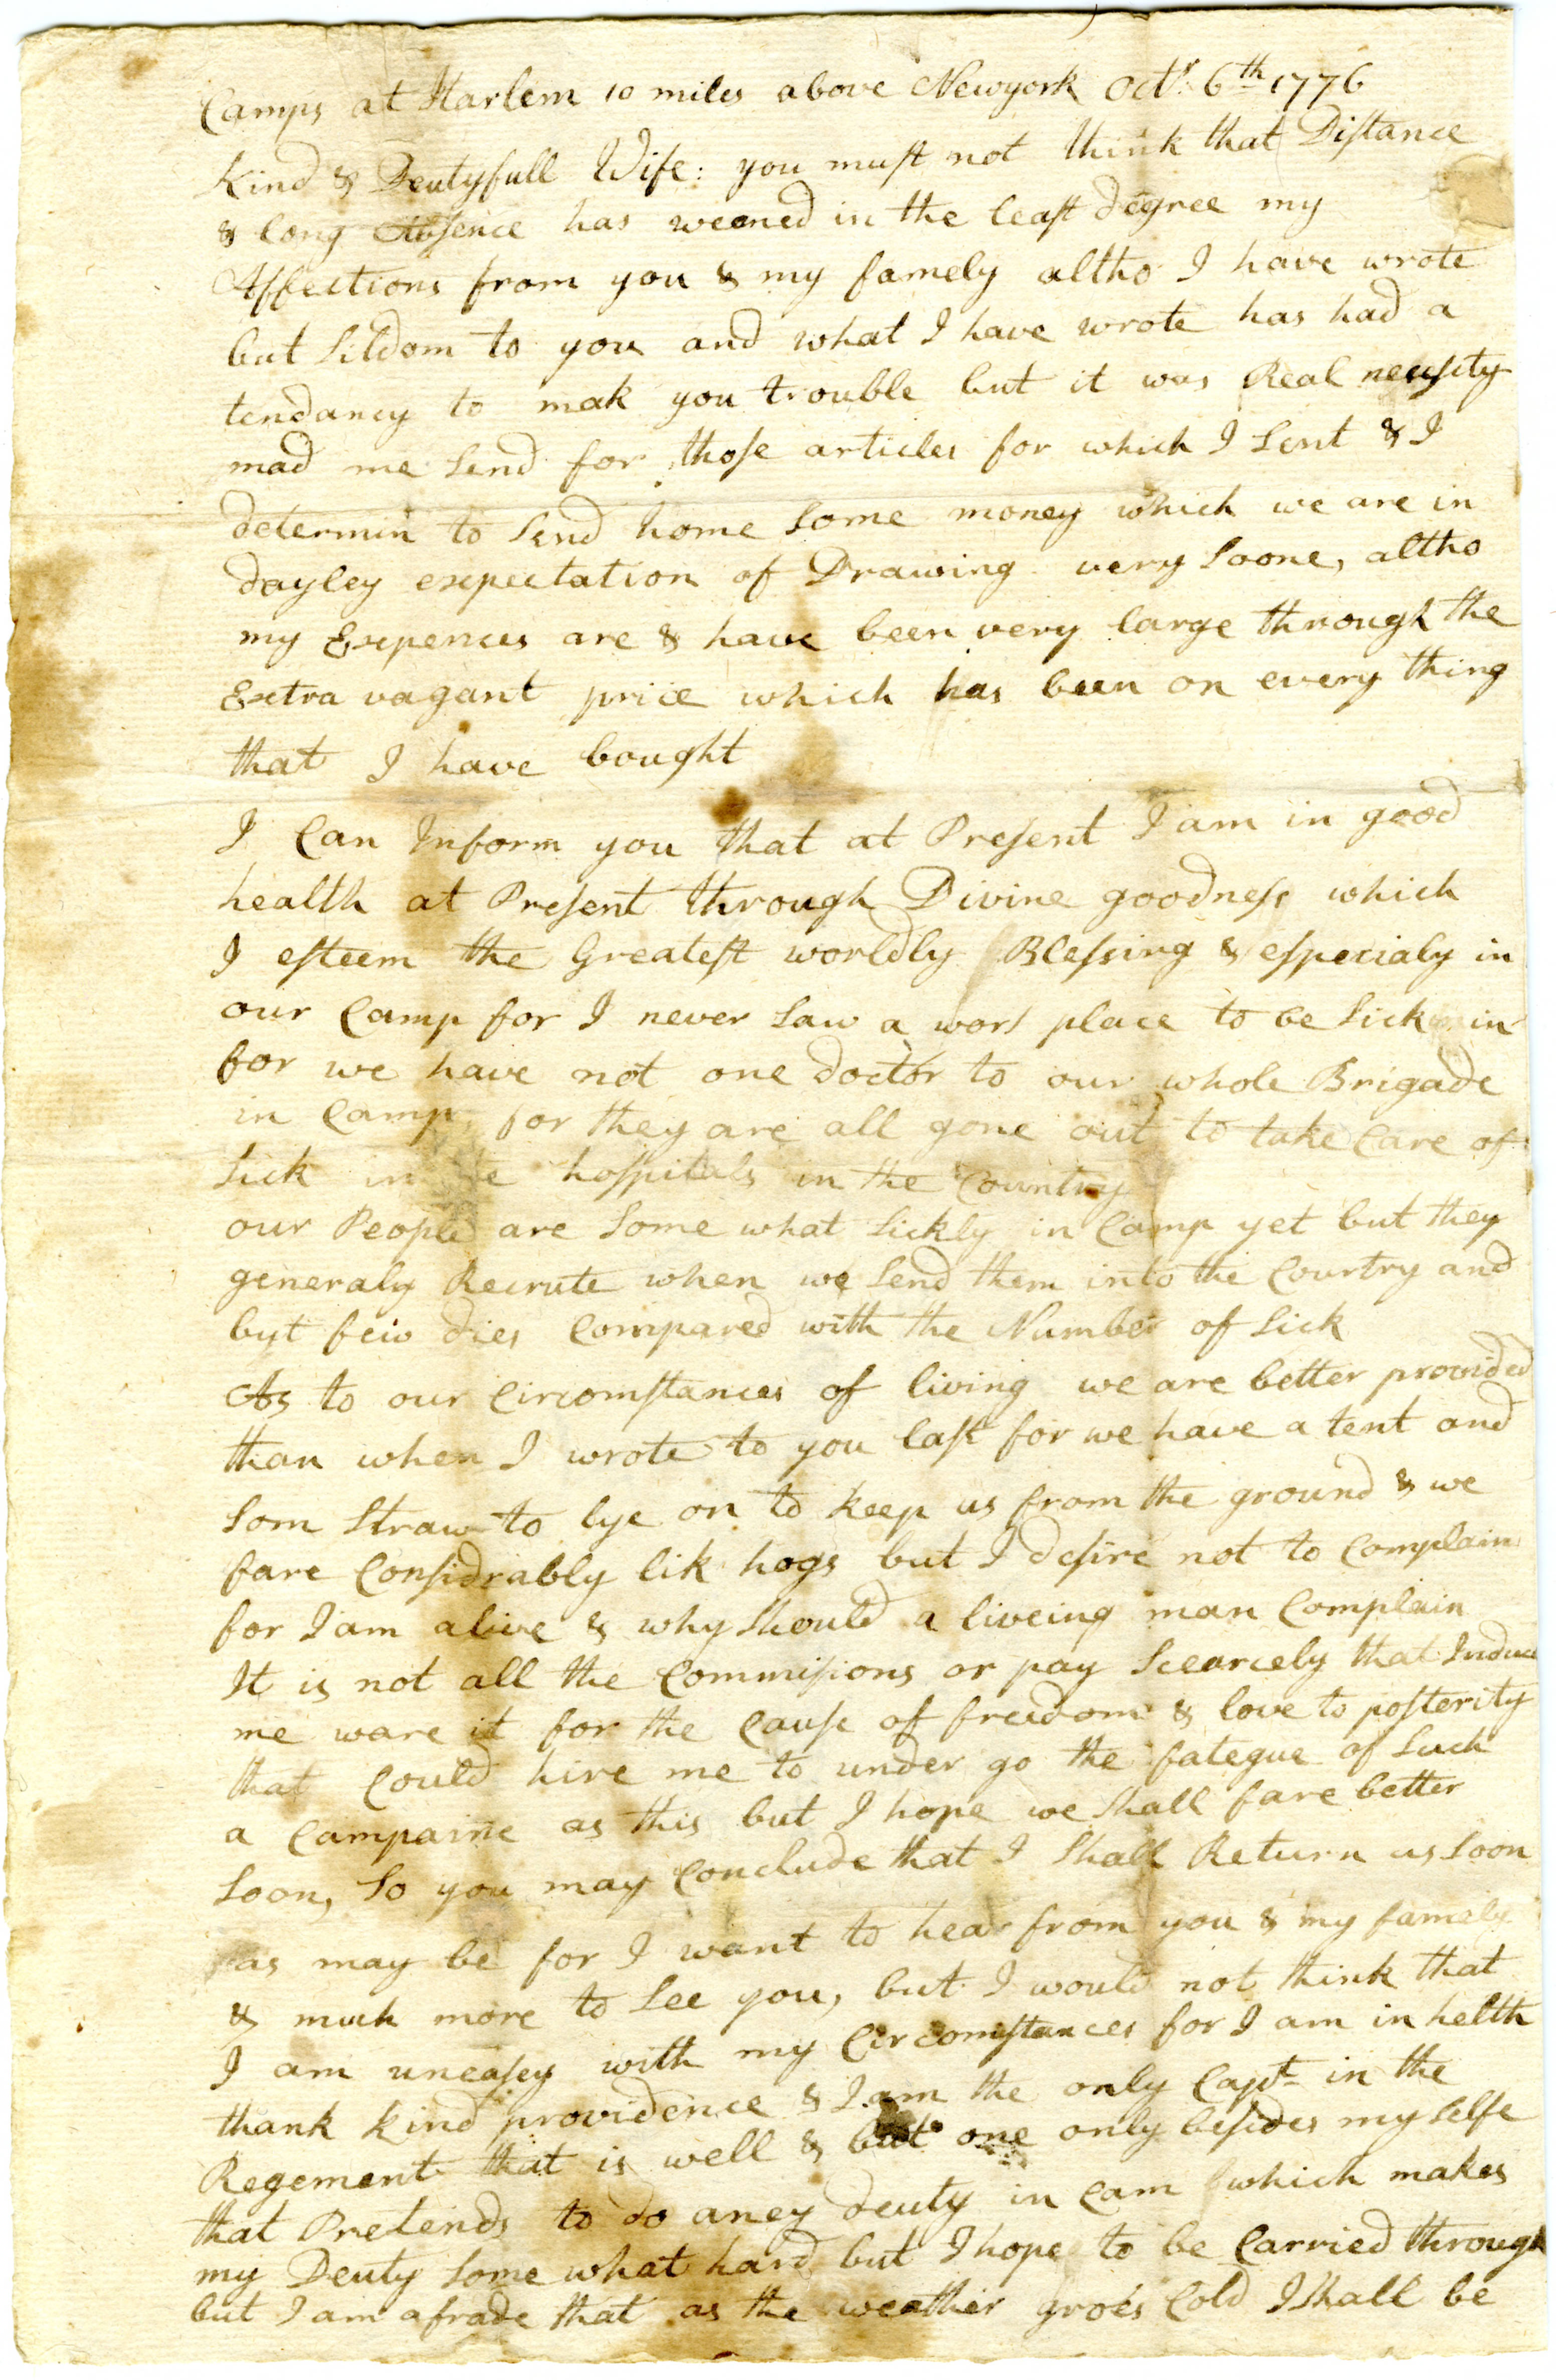 Camps at Harlem 10 miles above Newyork Octr. 6th 1776
Kind & Deutyfull Wife: you must not think that Distance
& long Absence has weened in the least degree my
Affections from you & my famely altho I have wrote
but sildom to you and what I have wrote has had a
tendancy to mak you trouble but it was Real necessity
mad me send for those articles for which I sent & I
determin to send home some money which we are in
dayley expectation of Drawing very soone, altho
my Expences are & have been very large through the
Extra vagant price which has been on every thing
that I have bought
I Can Inform you that at Present I am in good
health at Present through Divine goodness which
I esteem the Greatest worldly Blessing & especialy in
our Camp for I never saw a wors place to be sick in
for we have not one doctor to our whole Brigade
in Camp, for they are all gone out to take Care of
sick in hospitals in the Country
our People are some what sickly in Camp yet but they
generaly Recrute when we send them into the Courtry and
byt few dies Compared with the Number of sick
As to our Circomstances of living we are better provided
than when I wrote to you last for we have a tent and
som straw to lye on to keep us from the ground & we
fare Considrably lik hogs but I desire not to Complain
for I am alive & why should a liveing man Complain
It is not all the Commisions or pay scearcely that Induce
me ware it for the Cause of freedom & love to posterity
that Could hire me to under go the fategue of such
a Campaine as this but I hope we shall fare better
soon, so you may Conclude that I shall Return as soon
as may be for I want to hear from you & my famely
& much more to see you, but I would not think that
I am uneasey with my Circomstances for I am in helth
thank kind providence & I am the only Capt in the
Regement that is well & but one only besides my selfe
that Pretends to do aney deuty in Cam which makes
my Deuty some what hard but I hope to be Carried through
but I am afrade that as the weather groes Cold I shall be